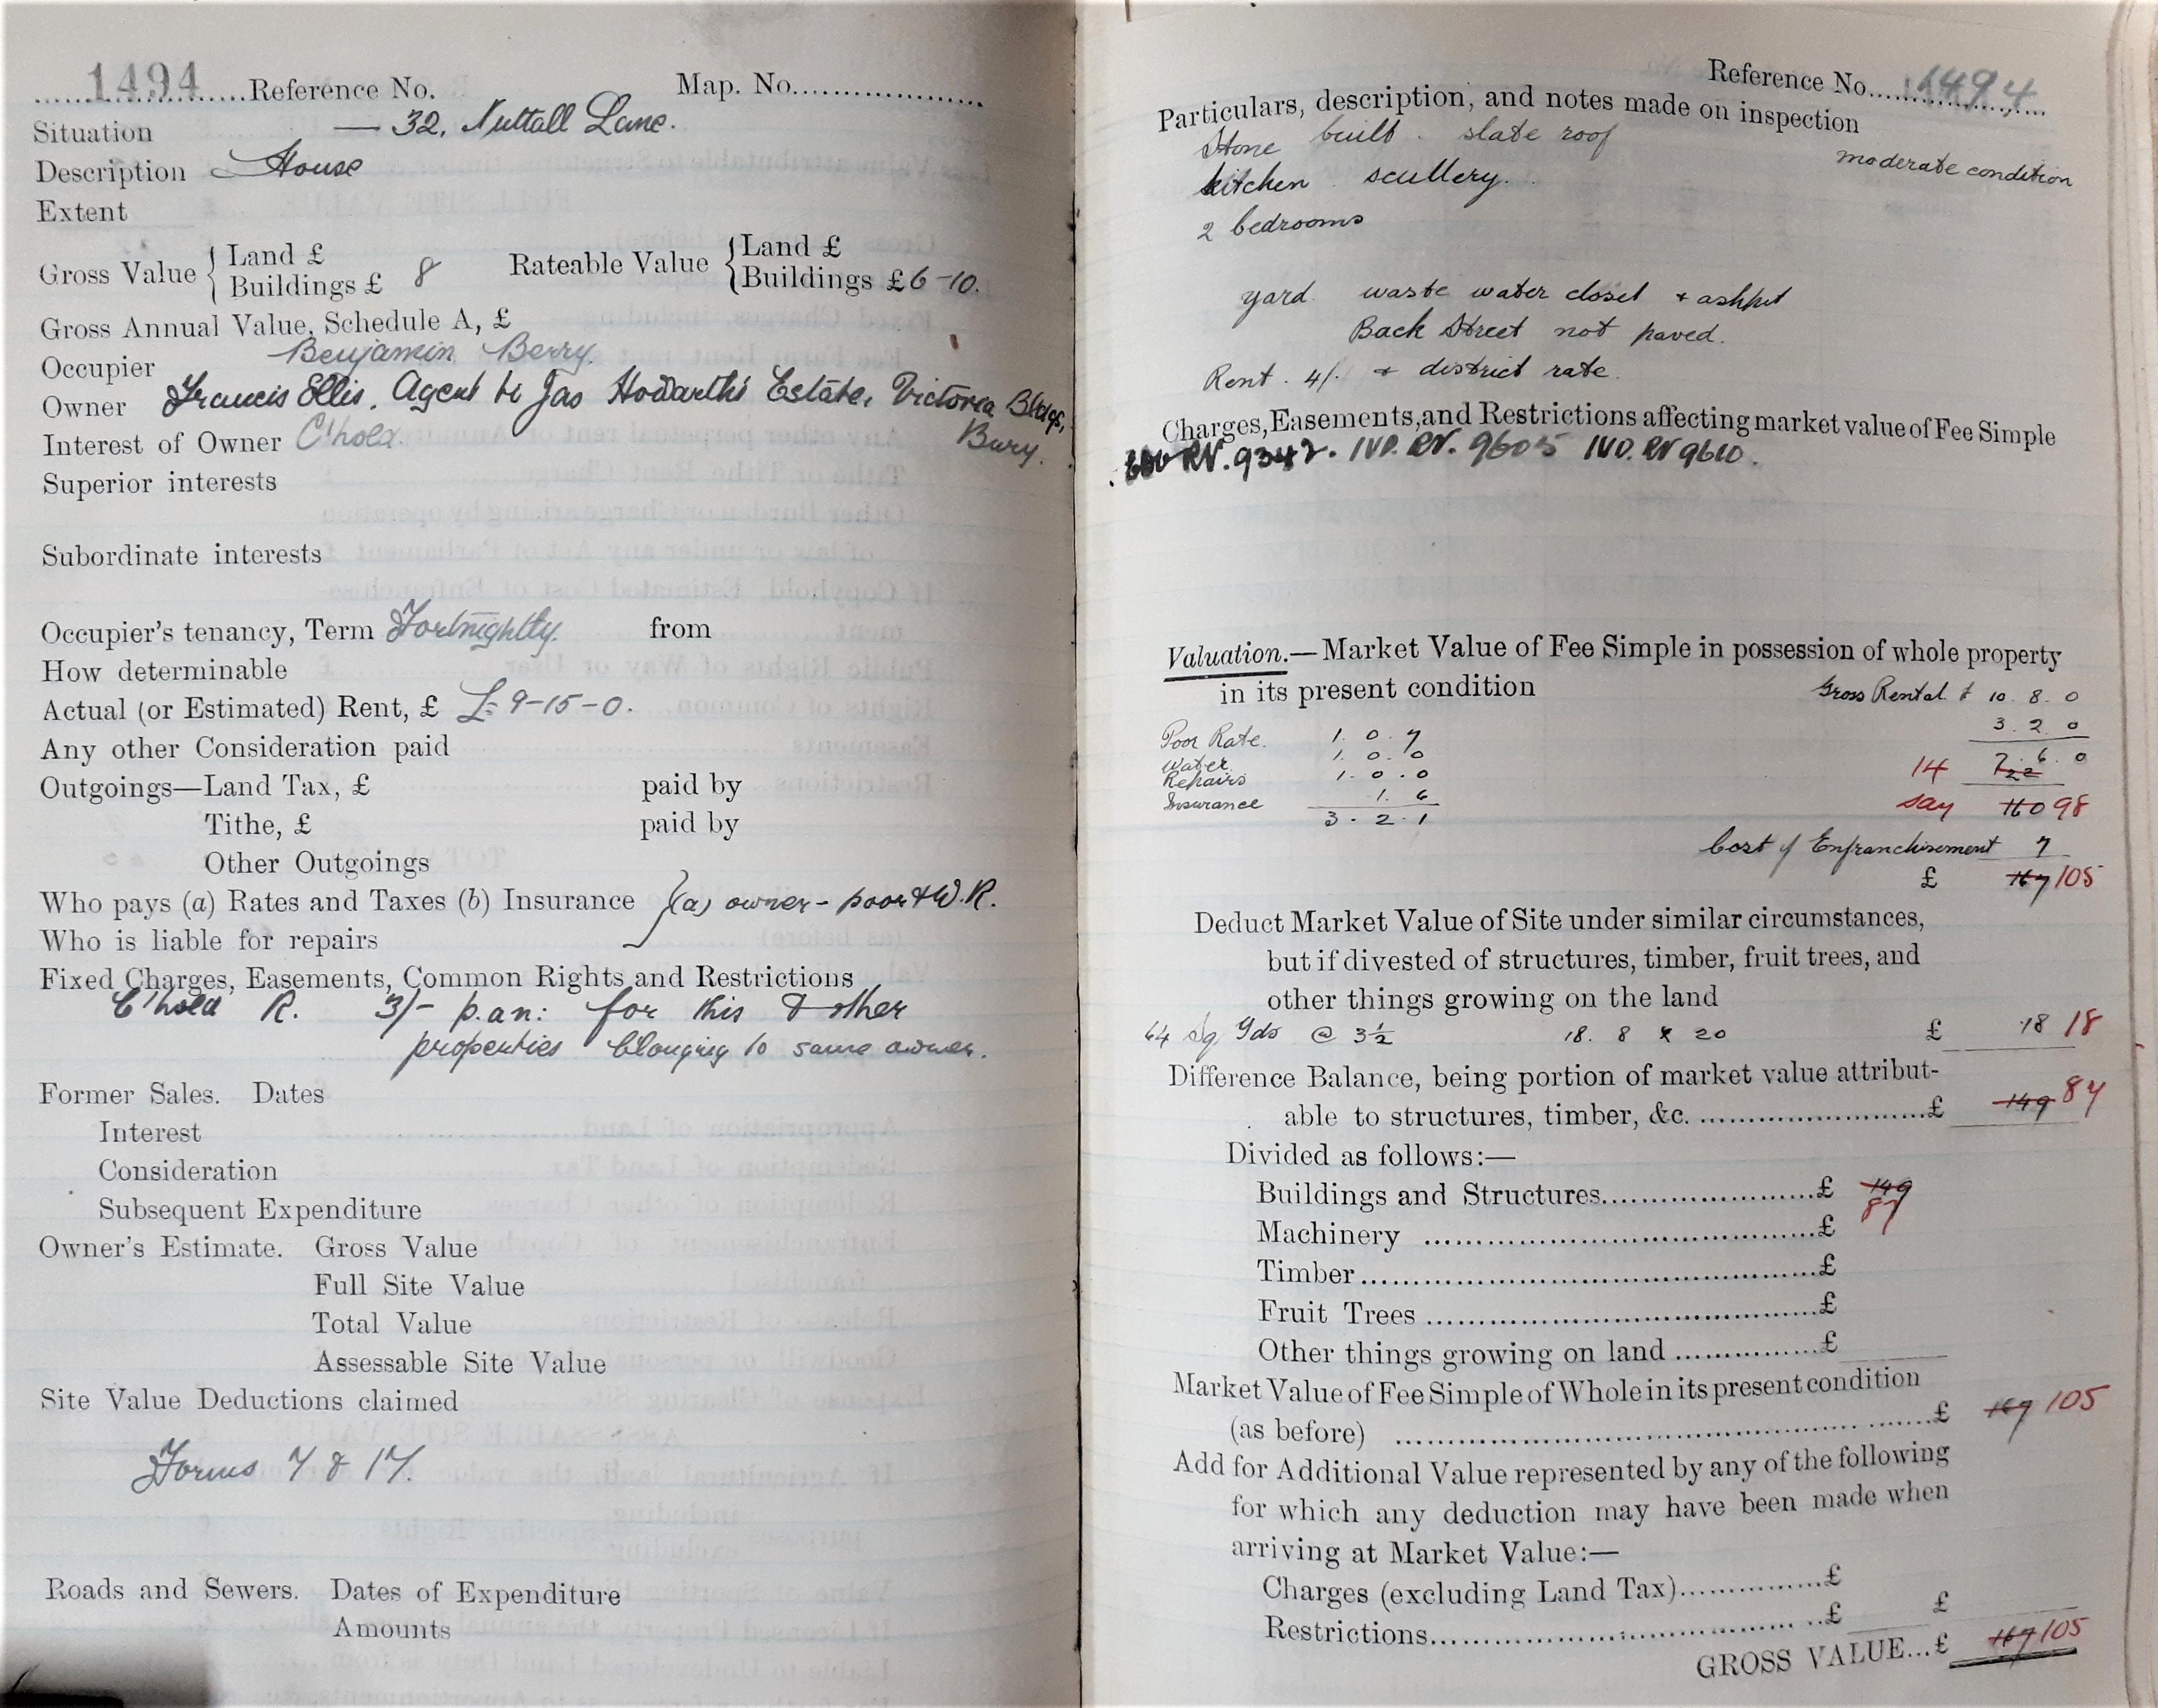 1494 Reference No. Map. No.
Situation — 32, Nuttall Lane.
Description House
Extent
Gross Value { Land £ Rateable Value { Land £
Buildings £ 8 Buildings £ 6-10.
Gross Annual Value, Schedule A, £
Occupier Benjamin Berry.
Owner Francis Ellis, Agent to Jas Howarth's Estate, Victoria Bldgs,
Bury.
Interest of Owner C'hold.
Superior interests
Subordinate interests
Occupier's tenancy, Term Fortnightly. from
How determinable
Actual (or Estimated) Rent, £ £9-15-0.
Any other Consideration paid
Outgoings—Land Tax, £ paid by
Tithe, £ paid by
Other Outgoings
Who pays (a) Rates and Taxes (b) Insurance } (a) owner - poor & W.R.
Who is liable for repairs
Fixed Charges, Easements, Common Rights and Restrictions
C'hold R. 3/- p.an: for this & other
properties blonging to same owner.
Former Sales. Dates
Interest
Consideration
Subsequent Expenditure
Owner's Estimate. Gross Value
Full Site Value
Total Value
Assessable Site Value
Site Value Deductions claimed
Forms 7 & 17.
Roads and Sewers. Dates of Expenditure
Amounts
Reference No. 1494
Particulars, description, and notes made on inspection
Stone built. slate roof
moderate condition
kitchen. scullery.
2 bedrooms
yard. waste water closet + ashpit
Back Street not paved.
Rent. 4/. + district rate.
Charges, Easements, and Restrictions affecting market value of Fee Simple
RV. 9342. IVD. RV. 9605 IVD. RV 9610.
Valuation.—Market Value of Fee Simple in possession of whole property
in its present condition Gross Rental £ 10. 8. 0
3. 2. 0
Poor Rate. 1. 0. 7
Water 1. 0. 0
Repairs 1. 0. 0
Insurance 1. 6
3. 2. 1
7. 6. 0
14 22
say 160 98
Cost of Enfranchisement 7
£ 167 105
Deduct Market Value of Site under similar circumstances,
but if divested of structures, timber, fruit trees, and
other things growing on the land
64 Sq Yds @ 3½ 18. 8 x 20 £ 18 18
Difference Balance, being portion of market value attribut-
able to structures, timber, &c. £ 149 87
Divided as follows:—
Buildings and Structures £ 149
87
Machinery £
Timber £
Fruit Trees £
Other things growing on land £
Market Value of Fee Simple of Whole in its present condition
(as before) £ 167 105
Add for Additional Value represented by any of the following
for which any deduction may have been made when
arriving at Market Value:—
Charges (excluding Land Tax) £
Restrictions £ £
GROSS VALUE...£ 167 105